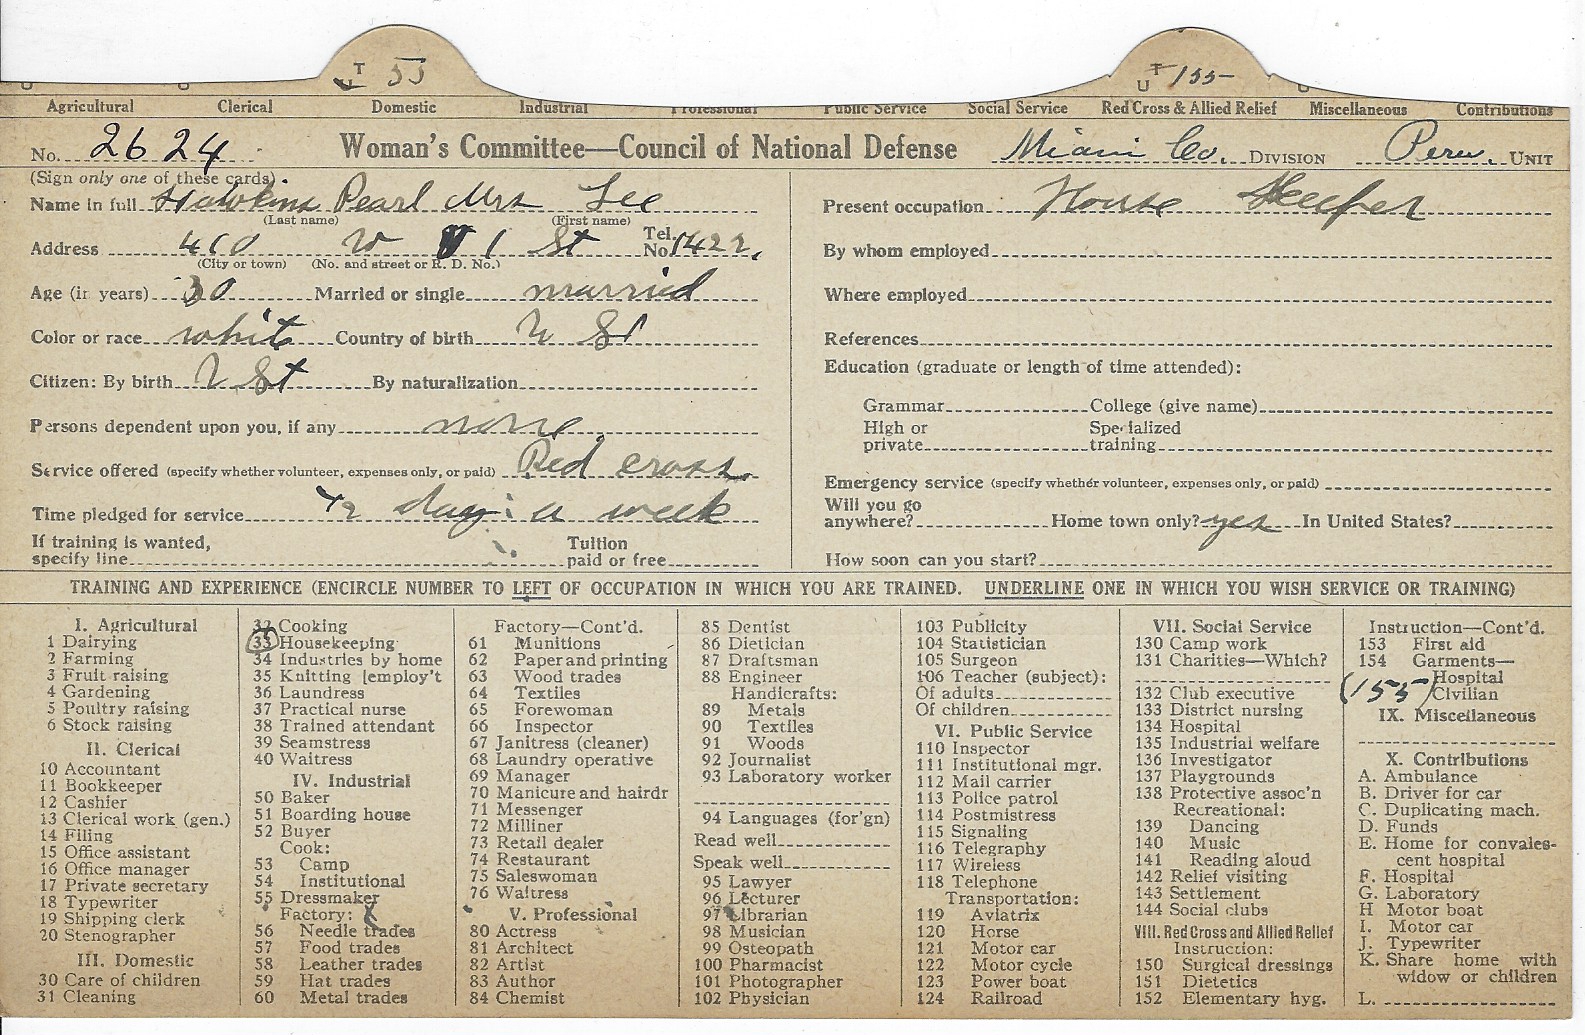 T 55 T 155
U U
Agricultural Clerical Domestic Industrial Professional Public Service Social Service Red Cross & Allied Relief Miscellaneous Contributions
No. 2624 Woman's Committee—Council of National Defense Miami Co. DIVISION Peru. UNIT
(Sign only one of these cards)
Name in full Hawkins Pearl Mrs Lee
(Last name) (First name)
Address 410 W 1 St Tel. No. 1422.
(City or town) (No. and street or R. D. No.)
Age (in years) 30 Married or single married
Color or race white Country of birth U St
Citizen: By birth U St By naturalization
Persons dependent upon you, if any none
Service offered (specify whether volunteer, expenses only, or paid) Red cross
Time pledged for service 1/2 day a week
If training is wanted, specify line Tuition paid or free
Present occupation House Keeper
By whom employed
Where employed
References
Education (graduate or length of time attended):
Grammar College (give name)
High or private Specialized training
Emergency service (specify whether volunteer, expenses only, or paid)
Will you go anywhere? Home town only? yes In United States?
How soon can you start?
TRAINING AND EXPERIENCE (ENCIRCLE NUMBER TO LEFT OF OCCUPATION IN WHICH YOU ARE TRAINED. UNDERLINE ONE IN WHICH YOU WISH SERVICE OR TRAINING)
I. Agricultural
1 Dairying
2 Farming
3 Fruit raising
4 Gardening
5 Poultry raising
6 Stock raising
II. Clerical
10 Accountant
11 Bookkeeper
12 Cashier
13 Clerical work (gen.)
14 Filing
15 Office assistant
16 Office manager
17 Private secretary
18 Typewriter
19 Shipping clerk
20 Stenographer
III. Domestic
30 Care of children
31 Cleaning
32 Cooking
33 Housekeeping
34 Industries by home
35 Knitting [employ't
36 Laundress
37 Practical nurse
38 Trained attendant
39 Seamstress
40 Waitress
IV. Industrial
50 Baker
51 Boarding house
52 Buyer
Cook:
53 Camp
54 Institutional
55 Dressmaker
Factory:
56 Needle trades
57 Food trades
58 Leather trades
59 Hat trades
60 Metal trades
Factory—Cont'd.
61 Munitions
62 Paper and printing
63 Wood trades
64 Textiles
65 Forewoman
66 Inspector
67 Janitress (cleaner)
68 Laundry operative
69 Manager
70 Manicure and hairdr
71 Messenger
72 Milliner
73 Retail dealer
74 Restaurant
75 Saleswoman
76 Waitress
V. Professional
80 Actress
81 Architect
82 Artist
83 Author
84 Chemist
85 Dentist
86 Dietician
87 Draftsman
88 Engineer
Handicrafts:
89 Metals
90 Textiles
91 Woods
92 Journalist
93 Laboratory worker
94 Languages (for'gn)
Read well
Speak well
95 Lawyer
96 Lecturer
97 Librarian
98 Musician
99 Osteopath
100 Pharmacist
101 Photographer
102 Physician
103 Publicity
104 Statistician
105 Surgeon
106 Teacher (subject):
Of adults
Of children
VI. Public Service
110 Inspector
111 Institutional mgr.
112 Mail carrier
113 Police patrol
114 Postmistress
115 Signaling
116 Telegraphy
117 Wireless
118 Telephone
Transportation:
119 Aviatrix
120 Horse
121 Motor car
122 Motor cycle
123 Power boat
124 Railroad
VII. Social Service
130 Camp work
131 Charities—Which?
132 Club executive
133 District nursing
134 Hospital
135 Industrial welfare
136 Investigator
137 Playgrounds
138 Protective assoc'n
Recreational:
139 Dancing
140 Music
141 Reading aloud
142 Relief visiting
143 Settlement
144 Social clubs
VIII. Red Cross and Allied Relief
Instruction:
150 Surgical dressings
151 Dietetics
152 Elementary hyg.
Instruction—Cont'd.
153 First aid
154 Garments—
Hospital
(155) Civilian
IX. Miscellaneous
X. Contributions
A. Ambulance
B. Driver for car
C. Duplicating mach.
D. Funds
E. Home for convales-
cent hospital
F. Hospital
G. Laboratory
H Motor boat
I. Motor car
J. Typewriter
K. Share home with
widow or children
L.